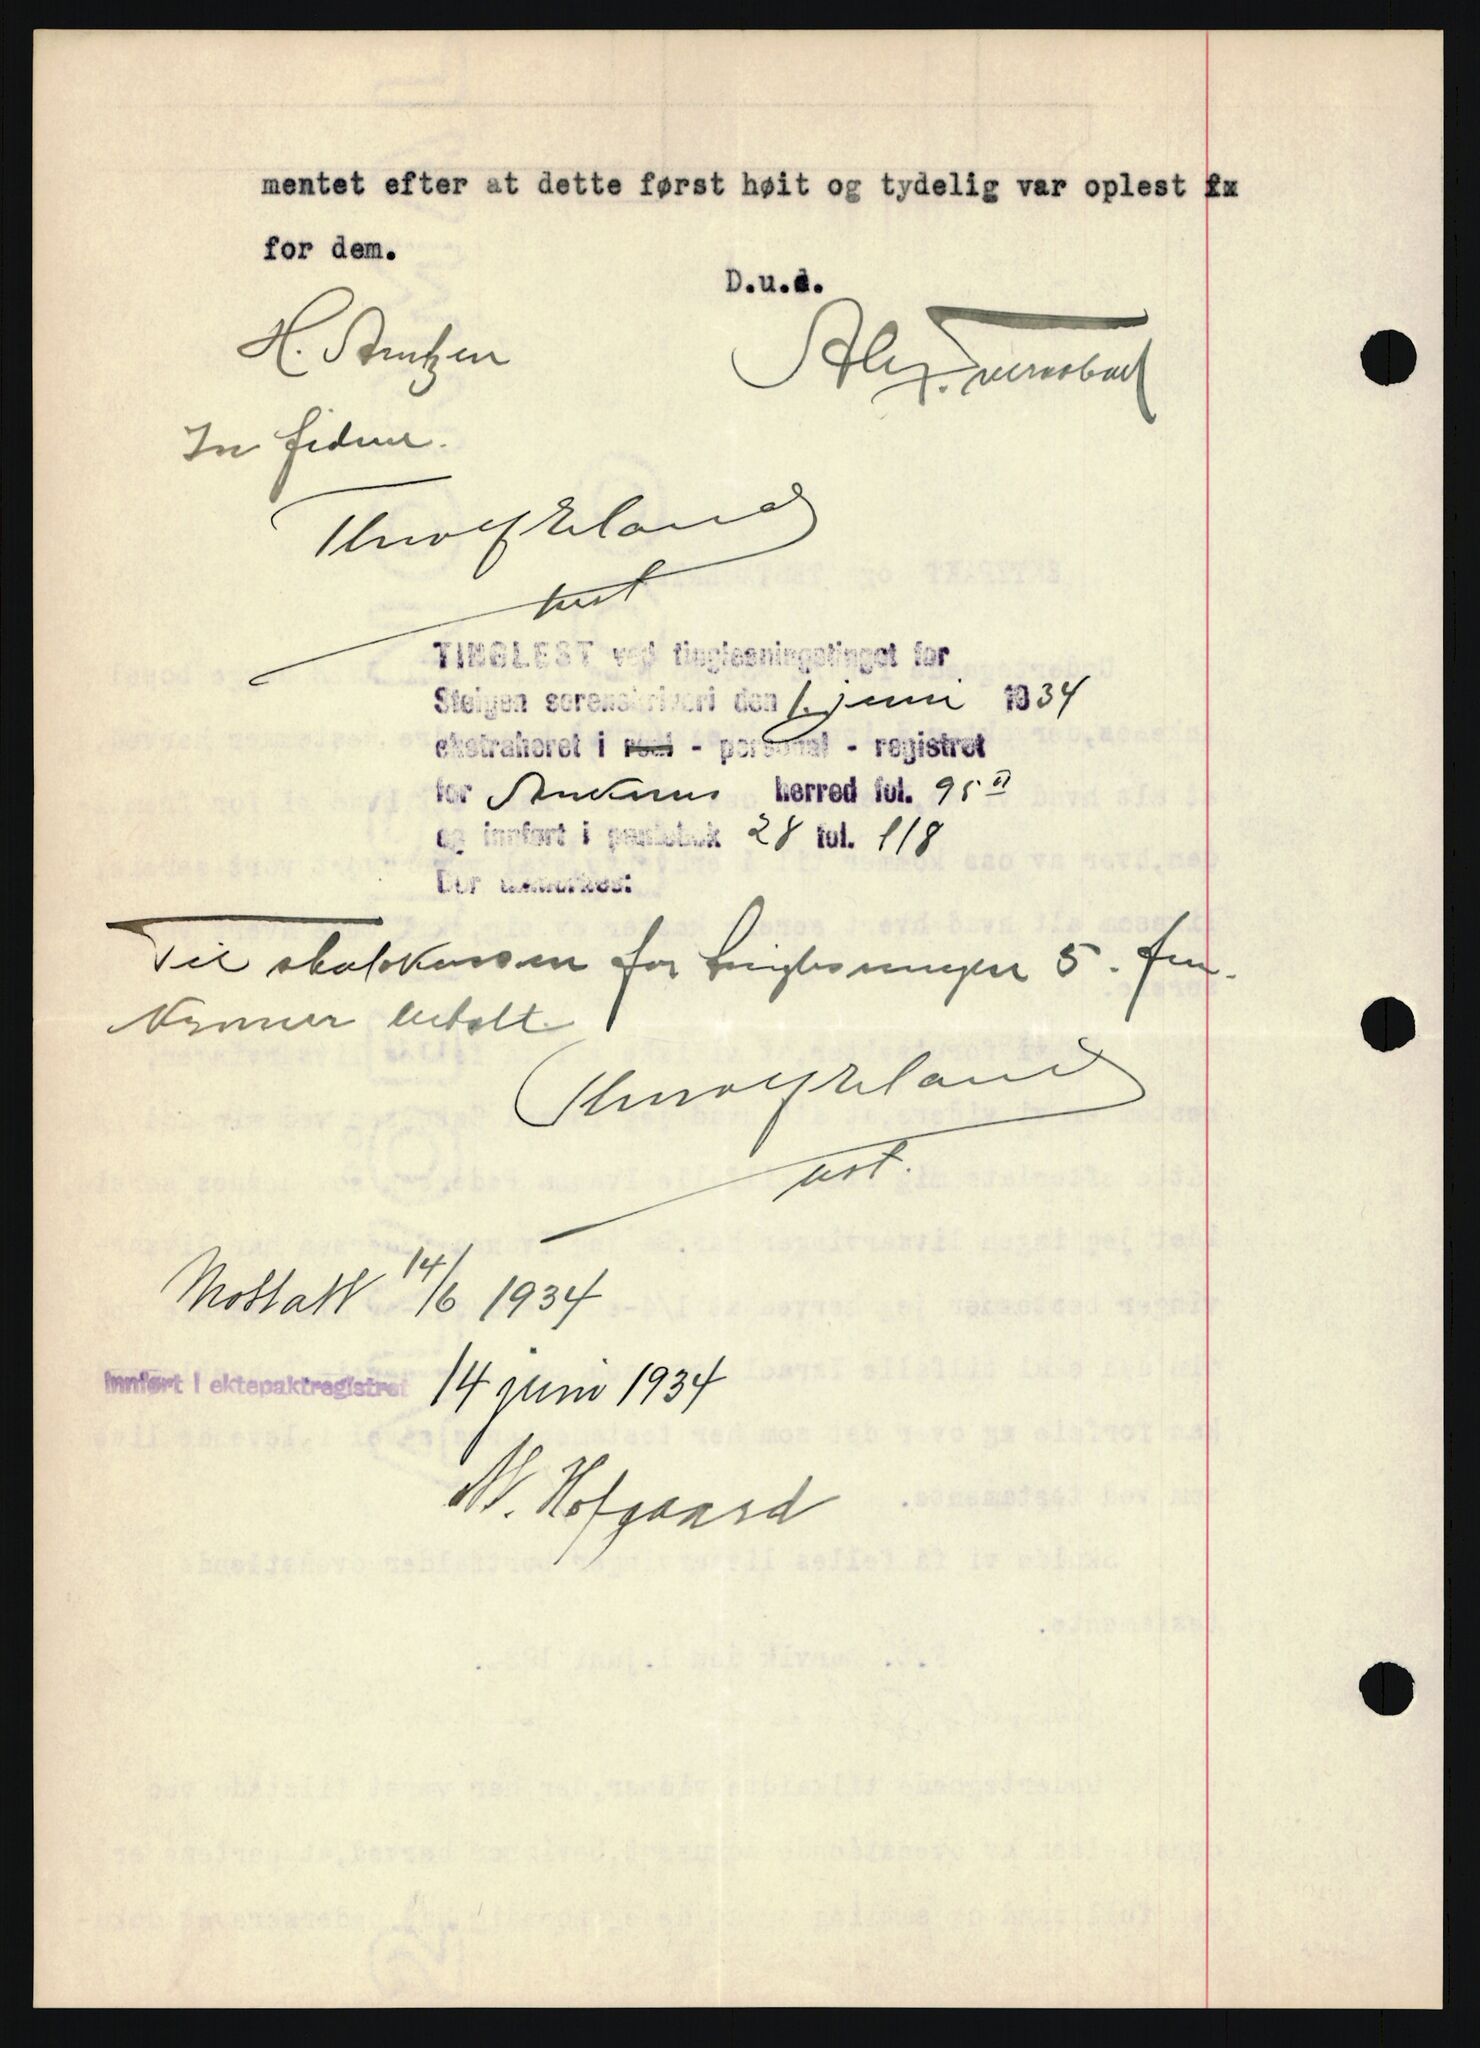 mentet efter at dette først høit og tydelig var oplest fx
for dem.
D.u.s.
H. Arntzen
In fidem.
TINGLEST ved tinglesningstinget for
Steigen sorenskriveri den 1. juni 1934
ekstraheret i real - personal - registret
for herred fol. 95 II
og innført i pantebok 28 fol. 118
Der anmerkes:
Til statskassen for tinglesningen 5. fem
kroner betalt.
Mottatt 14/6 1934
Innført i ektepaktregistret 14 juni 1934
N. Hofgaard